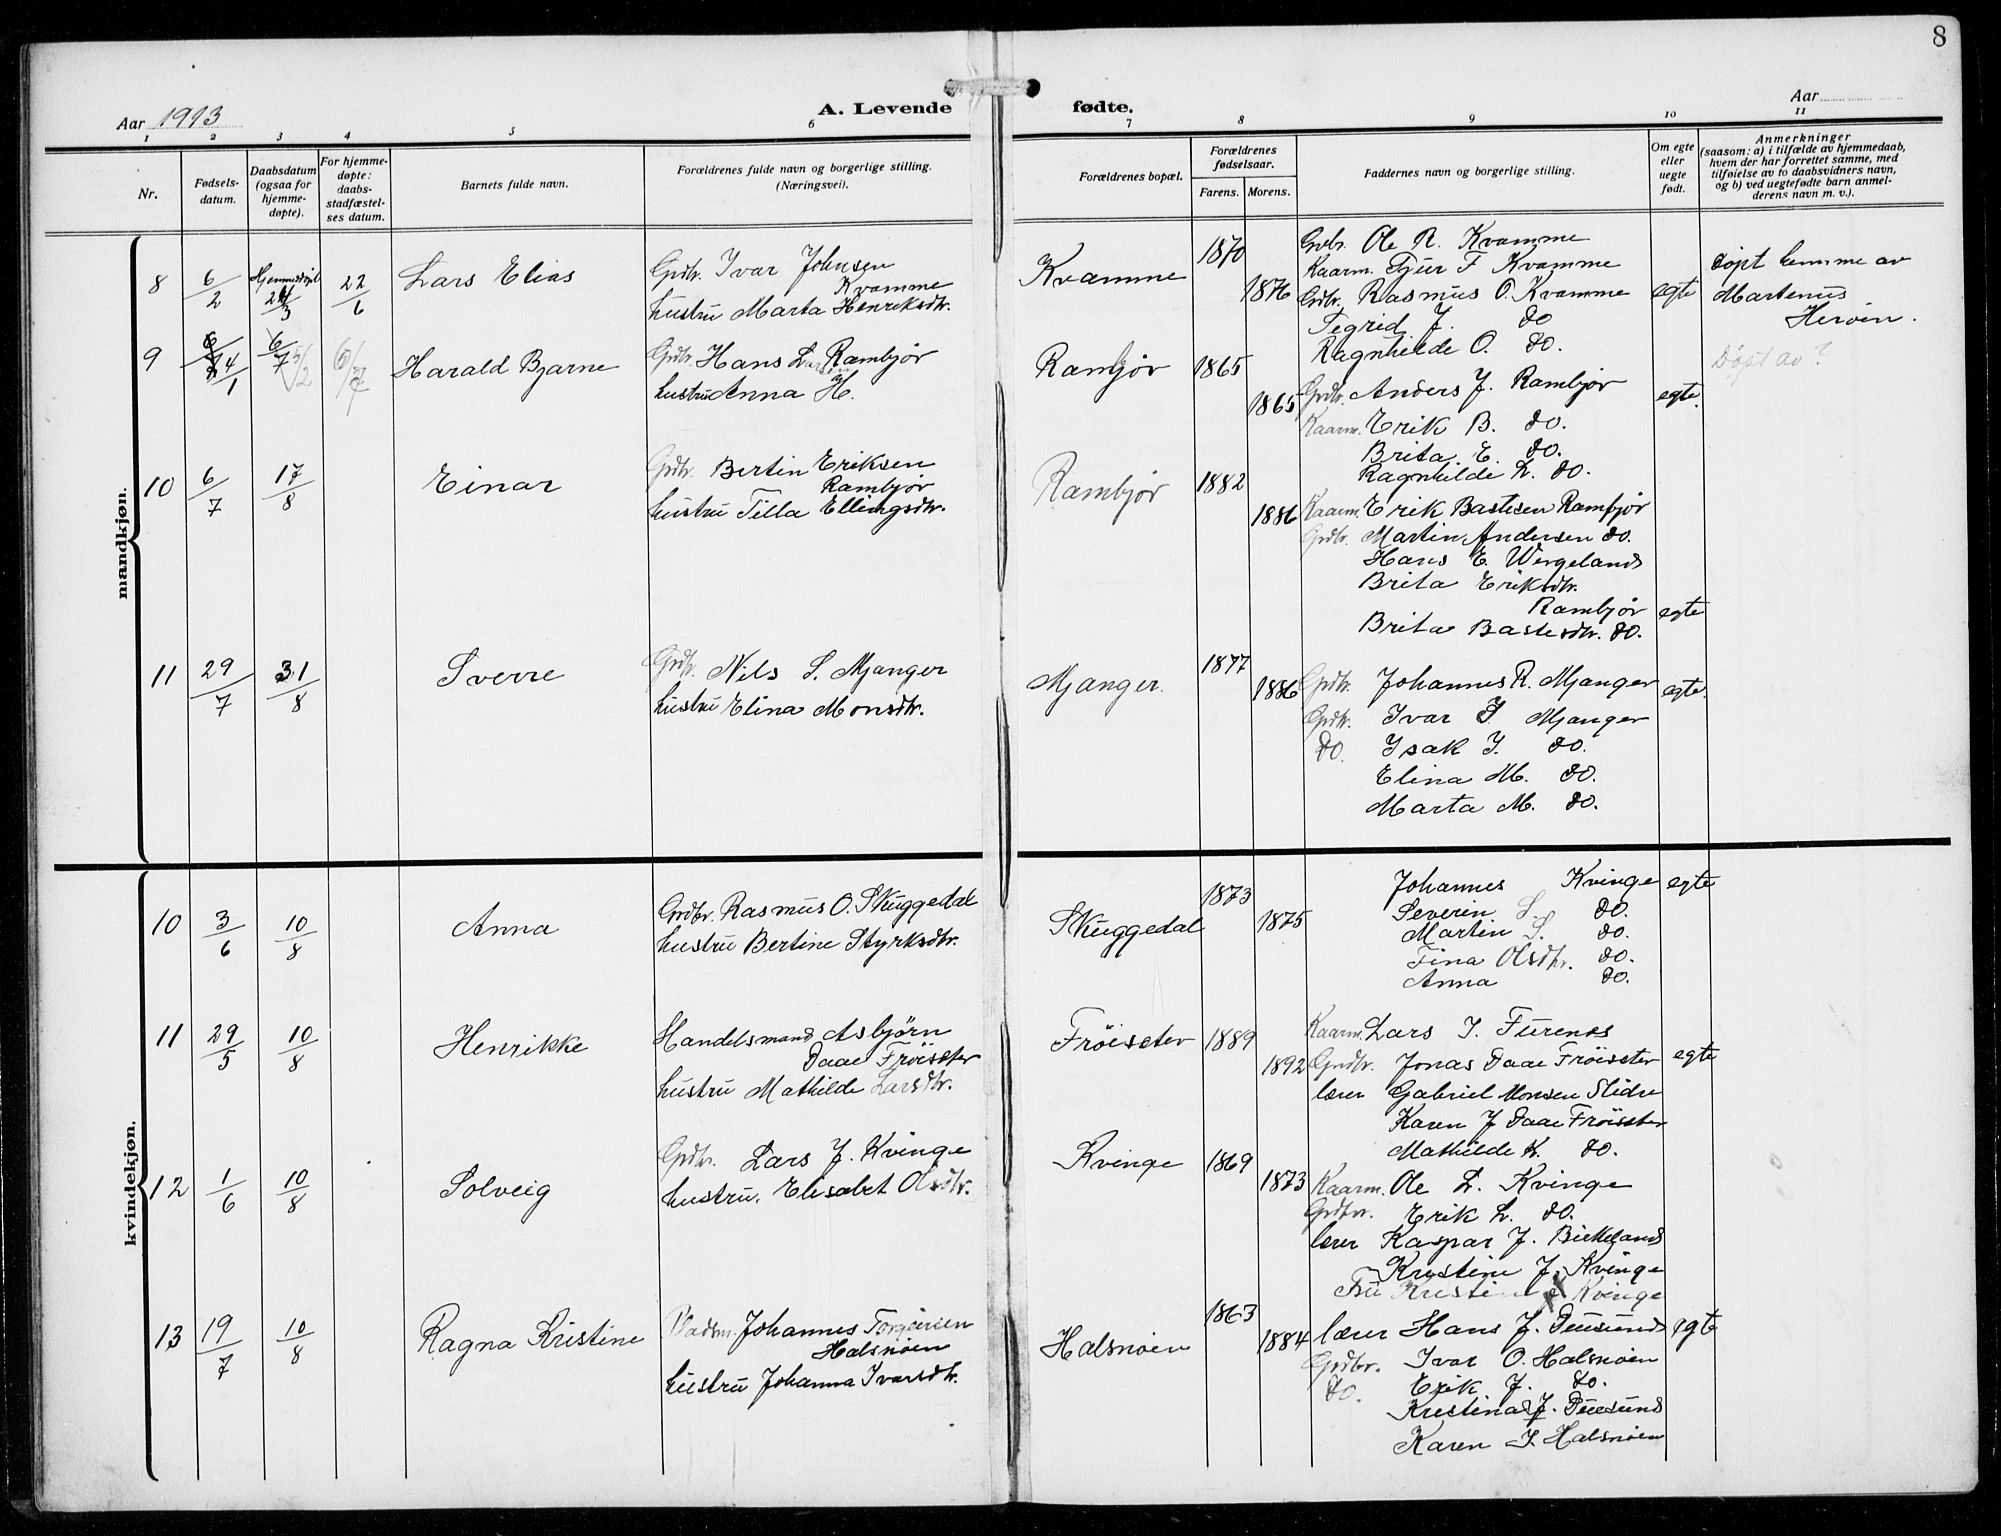 8
Aar 1913
A. Levende fødte.
Aar
1 2 3 4 5 6 7 8 9 10 11
Nr.
Fødsels-
datum.
Daabsdatum
(ogsaa for
hjemme-
døpte).
For hjemme-
døpte:
daabs-
stadfæstel-
ses datum.
Barnets fulde navn.
Forældrenes fulde navn og borgerlige stilling.
(Næringsvei).
Forældrenes bopæl.
Forældrenes
fødselsaar.
Farens. Morens.
Faddernes navn og borgerlige stilling.
Om egte
eller
uegte
født.
Anmerkninger
(saasom: a) i tilfælde av hjemmedaab,
hvem der har forrettet samme, med
tilføielse av to daabsvidners navn,
og b) ved uegtefødte barn anmel-
derens navn m. v.).
mandkjøn.
8 6/2 Hjemmedøpt 24/3 22/6 Lars Elias
Grdbr. Ivar Johnsen
Kvamme
hustru Marta Henriksdtr.
Kvamme 1870 1876
Grdbr. Ole R. Kvamme
Kaarm. Tjur F Kvamme
Grdbr. Rasmus O. Kvamme egte
Tegrid J. do
Ragnhilde O. do.
døpt hemme av
Martenus
Herøen.
9 24/1 6/7 5/2 6/7 Harald Bjarne
Grdbr. Hans Larsen Rambjør
hustru Anna H.
Rambjør 1865 1865
Grdbr. Anders J. Rambjør egte.
Kaarm. Erik B. do.
Brita E. do.
Ragnhilde L. do.
Døpt av ?
10 6/7 17/8 Einar
Grdbr. Bertin Eriksen
Rambjør
hustru Tilla Ellingsdtr.
Rambjør 1882 1886
Kaarm. Erik Bastesen Rambjør
Grdbr. Martin Andersen do.
Hans E. Wergeland
Brita Eriksdtr.
Rambjør egte
Brita Bastesdtr. do.
11 29/7 31/8 Sverre
Grdbr. Nils S. Mjanger
hustru Elina Monsdtr.
Mjanger. 1877 1886
Grdbr. Johannes R. Mjanger egte.
Grdbr. Ivar I Mjanger
do. Isak I. do.
Elina M. do.
Marta M. do.
kvindekjøn.
10 3/6 10/8 Anna
Grdbr. Rasmus O. Skuggedal
hustru Bertine Styrksdtr.
Skuggedal 1873 1875
Johannes Kvinge egte
Severin S. do.
Martin S. do.
Tina Olsdtr. do.
Anna do.
11 29/5 10/8 Henrikke
Handelsmand Asbjørn
Daae Frøiseter
hustru Mathilde Larsdtr.
Frøiseter 1889 1892
Kaarm. Lars I. Furenes
Grdbr. Jonas Daae Frøiseter egte
lærer Gabriel Monsen Slidre
Karen J Daae Frøiseter
Mathilde K. do.
12 1/6 10/8 Solveig
Grdbr. Lars J. Kvinge
hustru. Elisabet Olsdtr.
Kvinge 1869 1873
Kaarm. Ole L. Kvinge
Grdbr. Erik L. do.
lærer Kaspar J. Birkeland
Kristine J. Kvinge
Fru Kristine Kvinge
13 19/7 10/8 Ragna Kristine
Pladsm. Johannes Torgersen
Halsnøen
hustru Johanna Ivarsdtr.
Halsnøen 1863 1884
lærer Hans J. Duesund egte
Grdbr. Ivar O. Halsnøen
do. Erik J. do.
Kristina J. Duesund
Karen I. Halsnøen